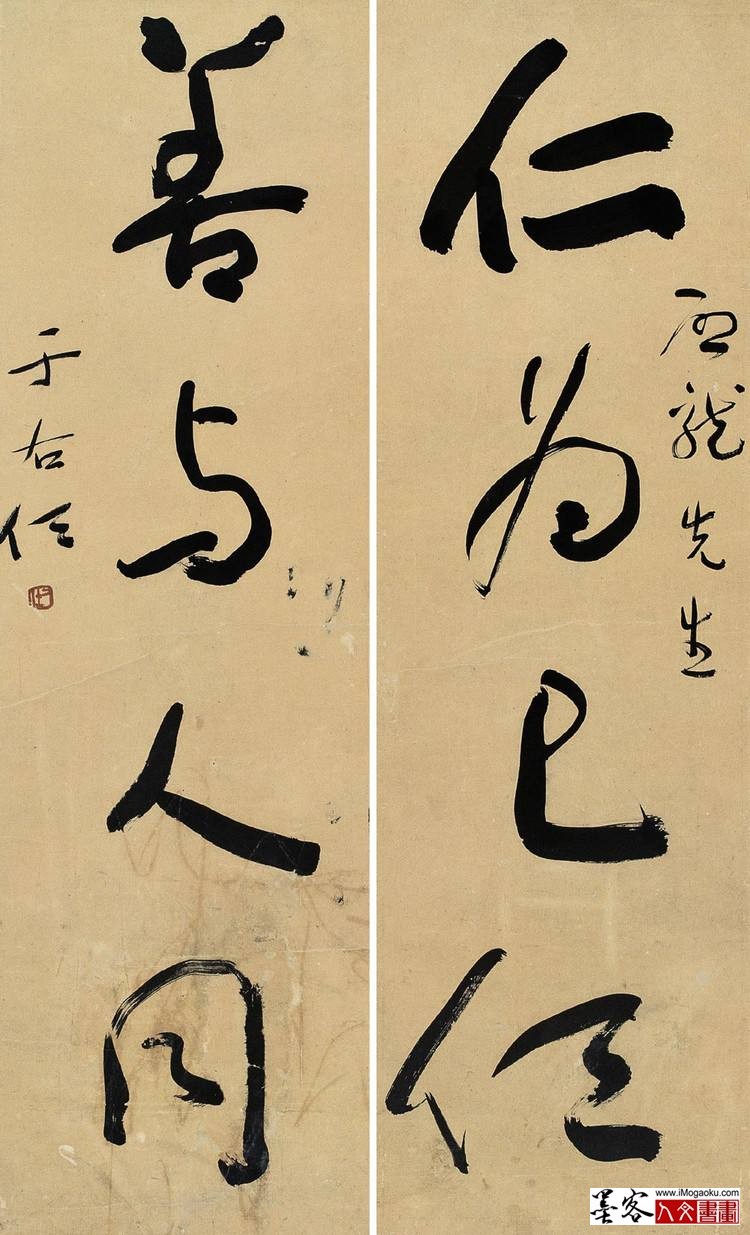 仁为己任
先生
善与人同
于右任
www.iMogaoku.com
墨客
人文书画